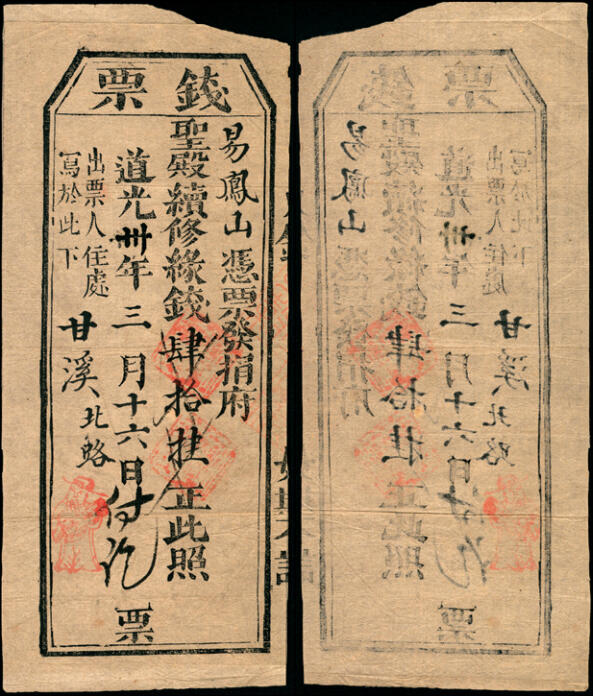 錢票
易鳳山憑票發捐府
聖殿續修緣錢肆拾㽵正此照
道光卅年三月十六日付訖
出票人住處
寫於此下
甘溪北路
票